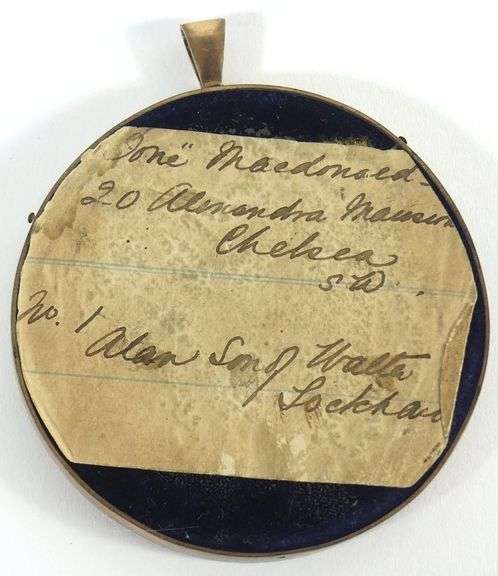 Macdonald
20 Alexandra Mansion
Chelsea
S.W.
No. 1
Alan Son of Walter
Lockhar